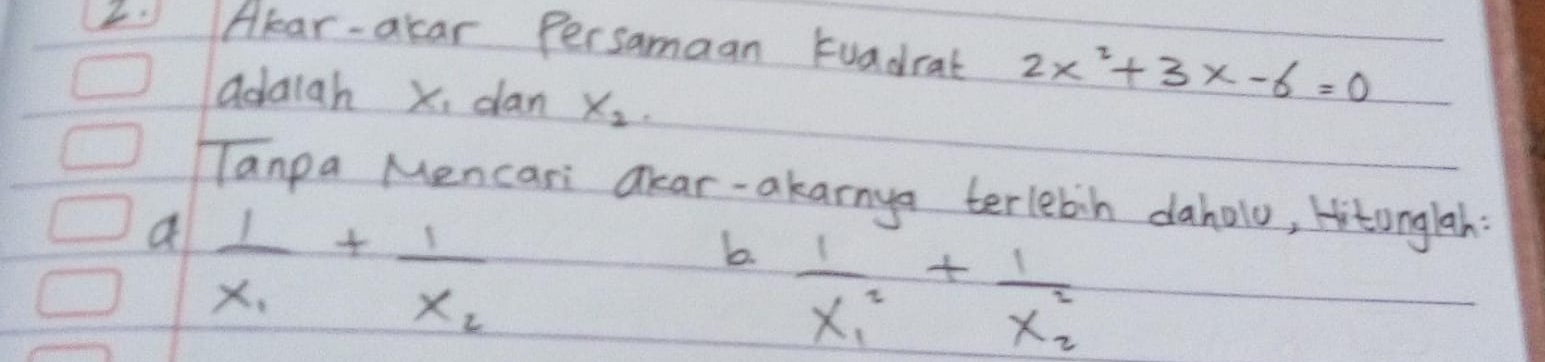 2. Akar-akar Persamaan Kuadrat 2x²+3x-6=0
adalah x₁ dan x₂.
Tanpa Mencari akar-akarnya terlebih daholu, Hitunglah:
a 1/x₁ + 1/x₂ b. 1/x₁² + 1/x₂²